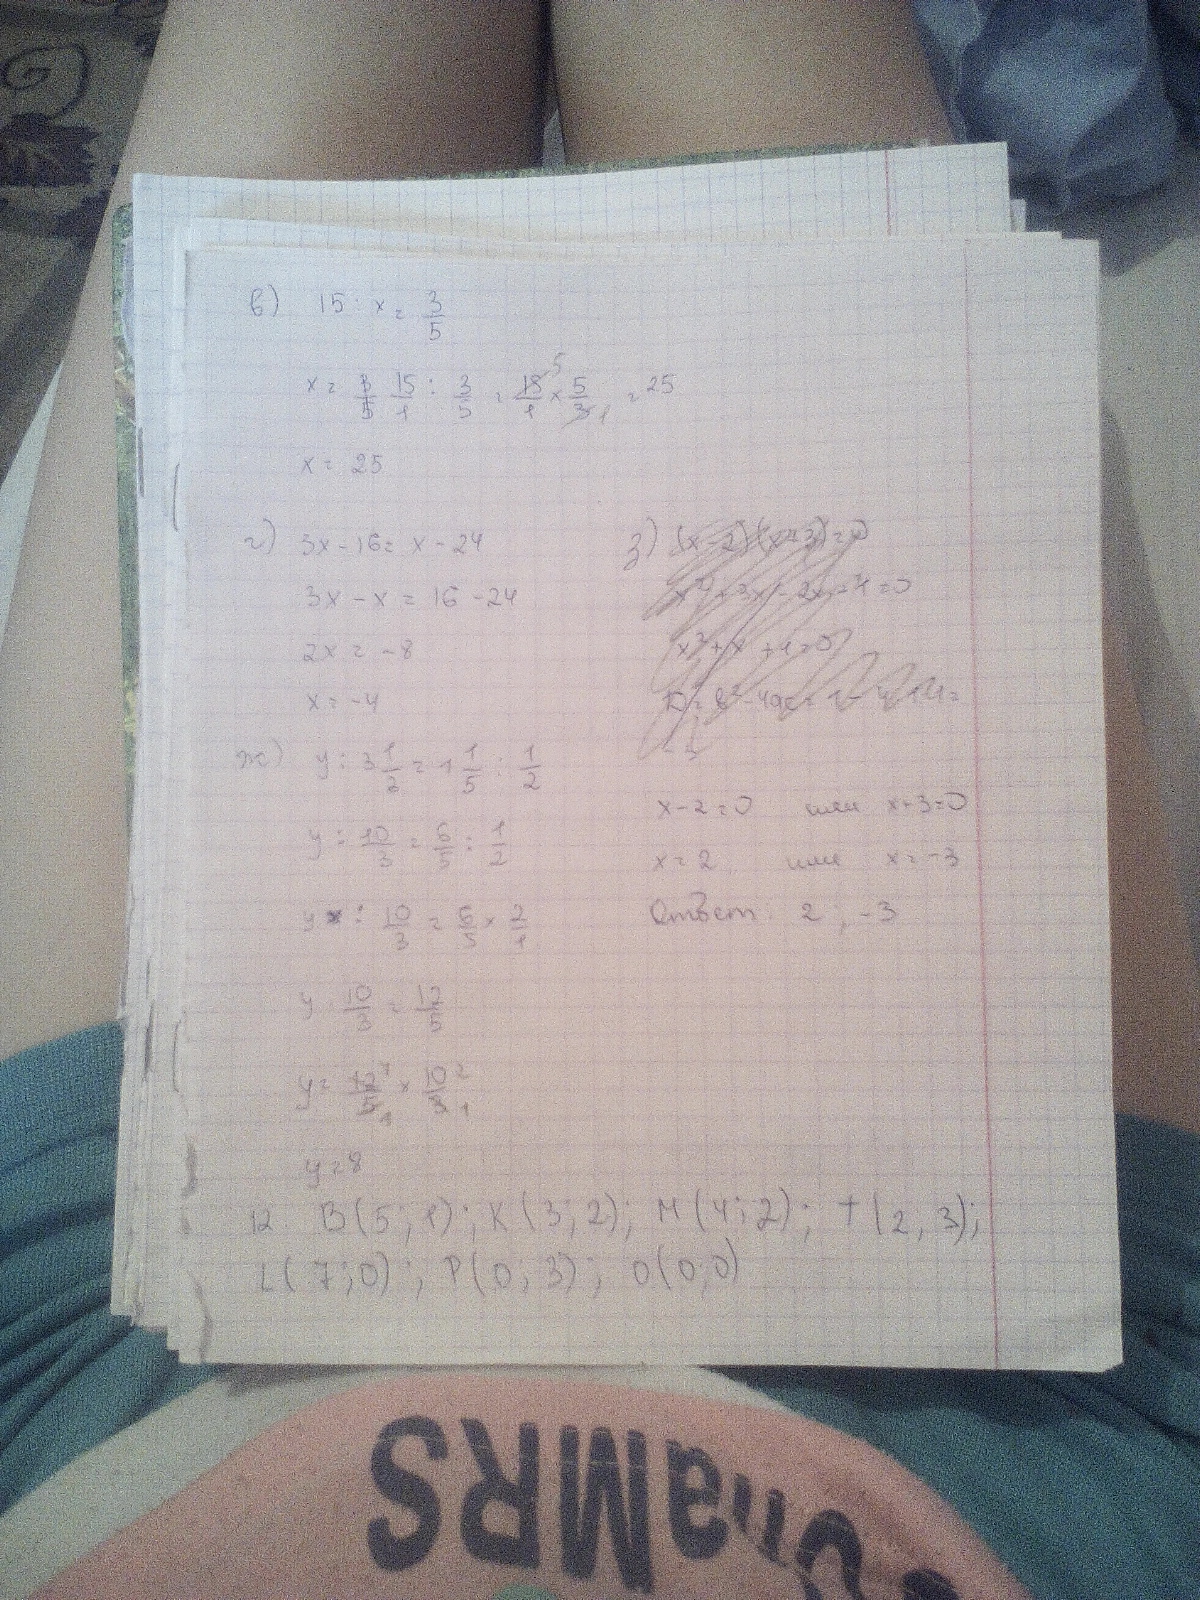 в) 15 : x = 3/5
x = 3/5 15/1 : 3/5 = 15/1 5 × 5/3 1 = 25
x = 25
г) 3x - 16 = x - 24
3x - x = 16 - 24
2x = -8
x = -4
ж) y : 3 1/2 = 1 1/5 : 1/2
y : 10/3 = 6/5 : 1/2
y : 10/3 = 6/5 × 2/1
y : 10/3 = 12/5
y = 12/5 1 × 10/3 2 1
y = 8
з) (x - 2)(x + 3) = 0
x - 2 = 0 или x + 3 = 0
x = 2 или x = -3
Ответ: 2 ; -3
12 B(5;1); K(3;2); M(4;2); T(2,3);
L(7;0); P(0;3); O(0;0)